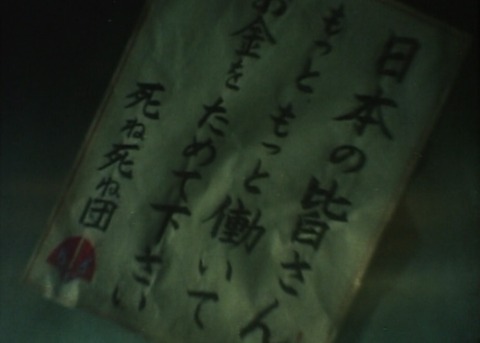 日本の皆さん
もっともっと働いて
お金をためて下さい
死ね死ね団